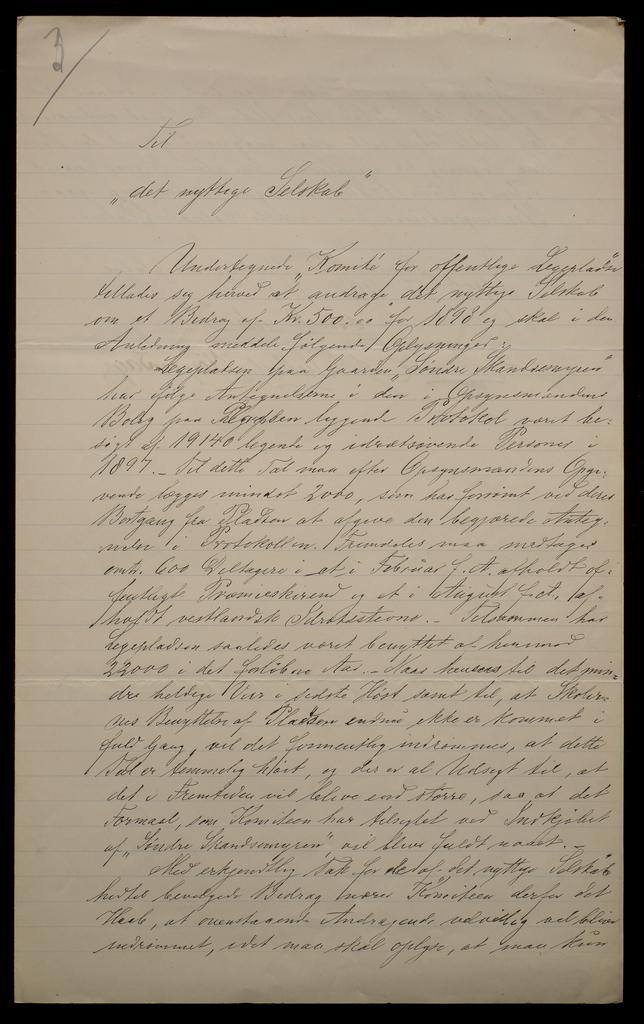 3/
Til
„det nyttige Selskab“
Undertegnede „Komité for offentlige Legepladse
tillader sig herved at andrage det nyttige Selskab
om et Bidrag af Kr. 500.00 for 1898 og skal i den
Anledning meddele følgende Oplysninger:
Legepladsen paa Gaarden „Søndre Skandsemyren“
har ifølge Antegnelserne i den i Opsynsmandens
Bolig paa Pladsen liggende Protokol været be-
søgt af 19140 legende og idrætsøvende Personer i
1897. – Til dette Tal maa efter Opsynsmandens Opgi-
vende lægges mindst 2000, som har forsømt ved deres
Bortgang fra Pladsen at afgive den begjærede Anteg-
nelse i Protokollen. Fremdeles maa medtages
omtr. 600 Deltagere i et i Februar f. A. afholdt of-
fentligt Præmieskirend og et i August f. A. af-
holdt vestlandsk Idrætsstevne. – Tilsammen har
Legepladsen saaledes været benyttet af henimod
22000 i det forløbne Aar. – Naar henses til det min-
dre heldige Veir i sidste Høst samt til, at Skoler-
nes Benyttelse af Pladsen endnu ikke er kommet i
fuld Gang, vil det formentlig indrømmes, at dette
Tal er temmelig høit, og der er al Udsigt til, at
det i Fremtiden vil blive end større, saa at det
Formaal, som Komiteen har tilsigtet ved Indkjøbet
af „Søndre Skandsemyren“ vil blive fuldt naaet. –
Med erkjendtlig Tak for de af det nyttige Selskab
hidtil bevilgede Bidrag nærer Komiteen derfor det
Haab, at ovenstaaende Andragende velvillig vil blive
indrømmet, idet man skal oplyse, at man kun